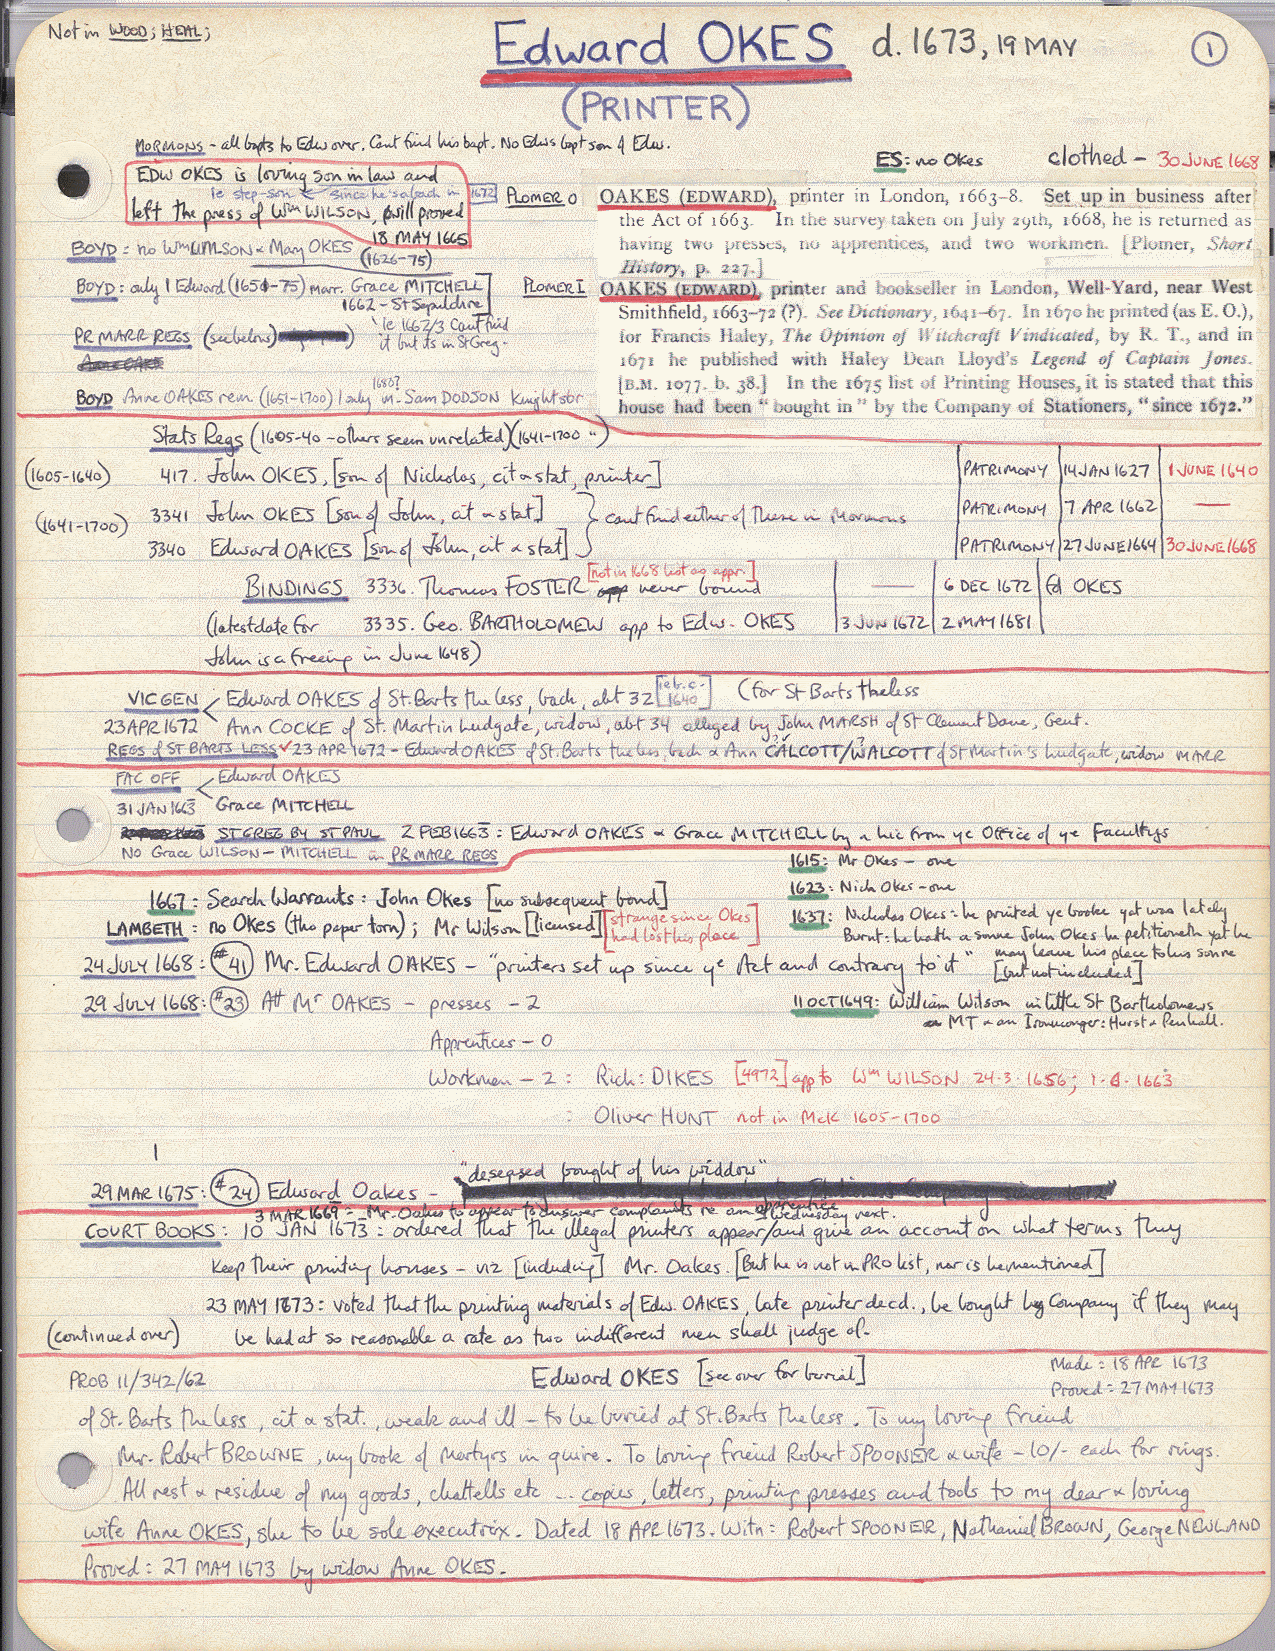 Not in WOOD; HEAL;
Edward OKES d. 1673, 19 MAY
1
(PRINTER)
MORMONS - all bapts to Edw over. Cant find his bapt. No Edws bapt son of Edw.
ES: no Okes clothed - 30 JUNE 1668
EDW OKES is loving son in law and
ie step-son since he's a bach in 1672
left the press of Wm WILSON, pwill proved
18 MAY 1665
BOYD: no Wm WILSON & Mary OKES (1626-75)
BOYD: only 1 Edward (1651-75) marr. Grace MITCHELL
1662 - St Sepulchre
PR MARR REGS (see below)
ie 1662/3 Cant find
it but its in St Greg-
Anne OAKES
1680?
BOYD Anne OAKES rem. (1651-1700) 1 only m. Sam DODSON Knightsbr
PLOMER O
OAKES (EDWARD), printer in London, 1663-8. Set up in business after
the Act of 1663. In the survey taken on July 29th, 1668, he is returned as
having two presses, no apprentices, and two workmen. [Plomer, Short
History, p. 227.]
PLOMER I
OAKES (EDWARD), printer and bookseller in London, Well-Yard, near West
Smithfield, 1663-72 (?). See Dictionary, 1641-67. In 1670 he printed (as E. O.),
for Francis Haley, The Opinion of Witchcraft Vindicated, by R. T., and in
1671 he published with Haley Dean Lloyd's Legend of Captain Jones.
[B.M. 1077. b. 38.] In the 1675 list of Printing Houses, it is stated that this
house had been "bought in" by the Company of Stationers, "since 1672."
Stats Regs (1605-40 - others seem unrelated) (1641-1700 ")
(1605-1640) 417. John OKES, [son of Nicholas, cit & stat, printer] PATRIMONY 14 JAN 1627 1 JUNE 1640
(1641-1700) 3341 John OKES [son of John, cit & stat] PATRIMONY 7 APR 1662 —
cant find either of these in Mormons
3340 Edward OAKES [son of John, cit & stat] PATRIMONY 27 JUNE 1664 30 JUNE 1668
[not in 1668 list as appr.]
BINDINGS 3336. Thomas FOSTER app never bound — 6 DEC 1672 Ed OKES
(latest date for 3335. Geo. BARTHOLOMEW app to Edw. OKES 3 JUN 1672 2 MAY 1681
John is a freeing in June 1648)
VIC GEN Edward OAKES of St. Barts the less, bach, abt 32 [ie b. c. 1640] (for St Barts the less
23 APR 1672 Ann COCKE of St. Martin Ludgate, widow, abt 34 alleged by John MARSH of St Clement Dane, Gent.
REGS of ST BARTS LESS ✓ 23 APR 1672 - Edward OAKES of St. Barts the less, bach & Ann CALCOTT/WALCOTT of St Martin's Ludgate, widow MARR
FAC OFF Edward OAKES
31 JAN 1663 Grace MITCHELL
ST GREG BY ST PAUL 2 FEB 1663: Edward OAKES & Grace MITCHELL by a lic from ye Office of ye Facultys
NO Grace WILSON - MITCHELL in PR MARR REGS
1615: Mr Okes - one
1623: Nich Okes - one
1637: Nicholas Okes: he printed ye booke yat was lately
Burnt: he hath a sonne John Okes he petitioneth yat he
may leave his place to his sonne
[but not included]
11 OCT 1649: William Wilson in little St Bartholomews
& MT & an Ironmonger: Hurst & Penhall.
1667: Search Warrants: John Okes [no subsequent bond]
LAMBETH: no Okes (tho paper torn); Mr Wilson [licensed] [strange since Okes
had lost his place]
24 JULY 1668: #41 Mr. Edward OAKES - "printers set up since ye Act and contrary to it"
29 JULY 1668: #23 Att Mr OAKES - presses - 2
Apprentices - 0
Workmen - 2: Rich: DIKES [4972] app to Wm WILSON 24.3.1656; 1.6.1663
: Oliver HUNT not in McK 1605-1700
"deseased bought of his widdow"
29 MAR 1675: #24 Edward Oakes -
3 MAR 1669: Mr. Oakes to appear to answer complaints re an apprentice Wednesday next.
COURT BOOKS: 10 JAN 1673: ordered that the illegal printers appear/and give an account on what terms they
keep their printing houses - viz [including] Mr. Oakes. [But he is not in PRO list, nor is he mentioned]
23 MAY 1673: voted that the printing materials of Edw. OAKES, late printer decd., be bought by Company if they may
(continued over) be had at so reasonable a rate as two indifferent men shall judge of.
PROB 11/342/62 Edward OKES [see over for burial] Made: 18 APR 1673
Proved: 27 MAY 1673
of St. Barts the less, cit & stat., weak and ill - to be buried at St. Barts the less. To my loving friend
Mr. Robert BROWNE, my book of Martyrs in quire. To loving friend Robert SPOONER & wife - 10/- each for rings.
All rest & residue of my goods, chattells etc ... copies, letters, printing presses and tools to my dear & loving
wife Anne OKES, she to be sole executrix. Dated 18 APR 1673. Witn: Robert SPOONER, Nathaniel BROWN, George NEWLAND
Proved: 27 MAY 1673 by widow Anne OKES.